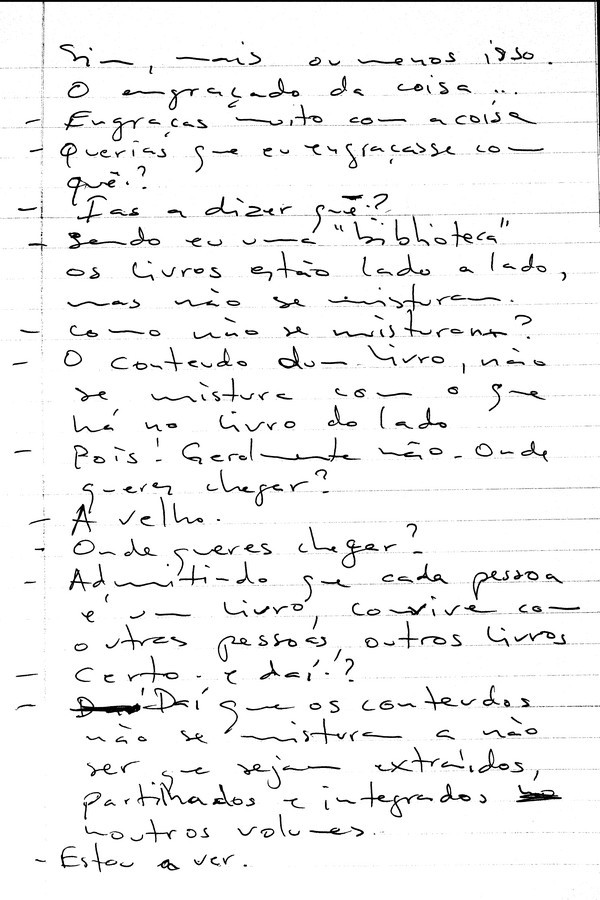 Sim, mais ou menos isso.
O engraçado da coisa...
- Engraças muito com a coisa
- Querias que eu engraçasse com
quê.?
- Ias a dizer quê.?
- Sendo eu uma "biblioteca"
os livros estão lado a lado,
mas não se misturam.
- Como não se misturam?
- O conteudo dum livro, não
se mistura com o que
há no livro do lado
- Pois! Geralmente não. Onde
queres chegar?
- A velho.
- Onde queres chegar?
- Admitindo que cada pessoa
é um livro, convive com
outras pessoas, outros livros
- Certo. e daí.?
- Daí que os conteudos
não se mistura a não
ser que sejam extraídos,
partilhados e integrados
noutros volumes.
- Estou a ver.